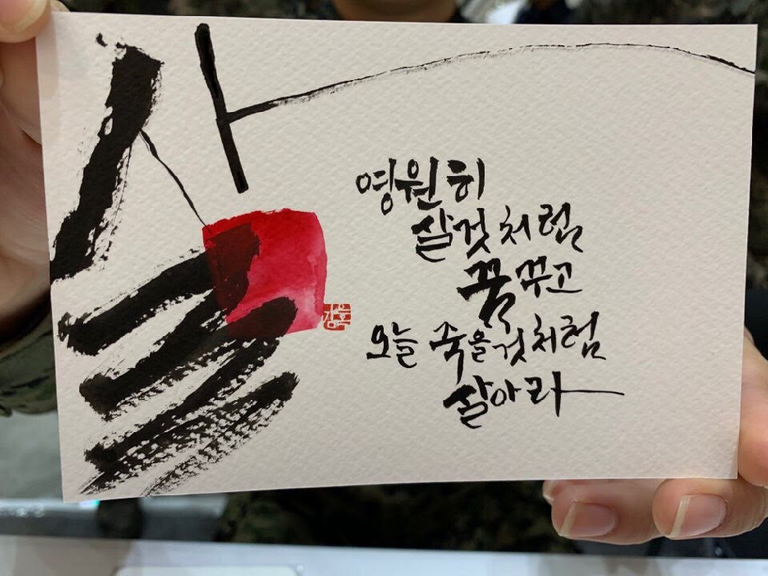 삶
영원히
살것처럼
꿈꾸고
오늘 죽을것처럼
살아라